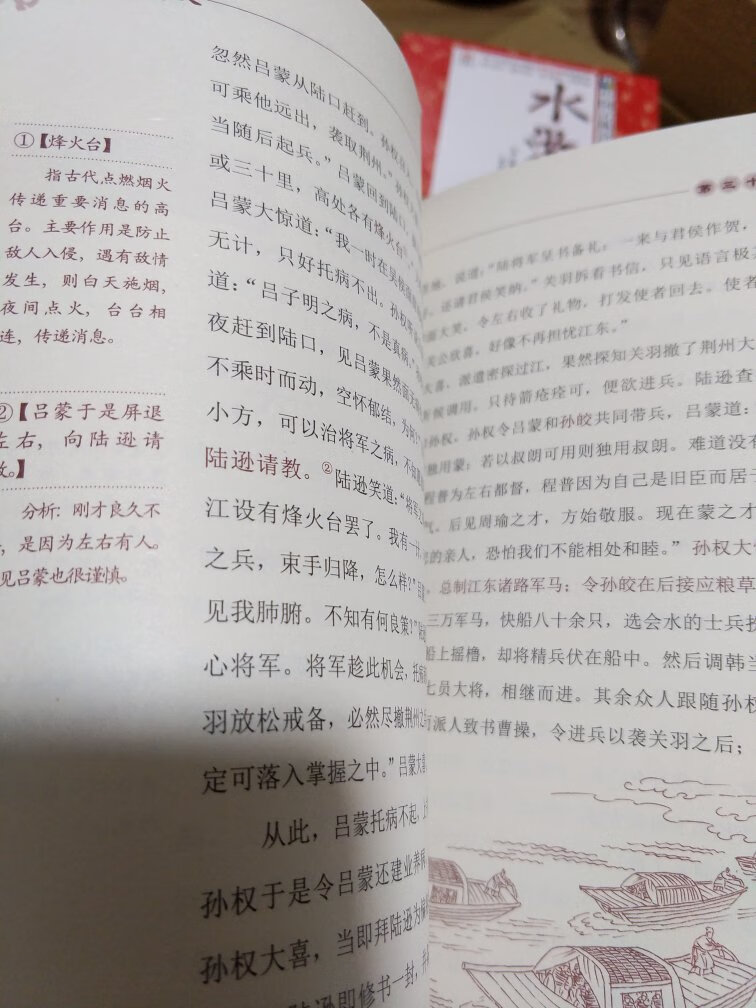 ①【烽火台】
指古代点燃烟火
传递重要消息的高
台。主要作用是防止
敌人入侵，遇有敌情
发生，则白天施烟，
夜间点火，台台相
连，传递消息。
②【吕蒙于是屏退
左右，向陆逊请
教。】
分析：刚才良久不
，是因为左右有人。
见吕蒙也很谨慎。
忽然吕蒙从陆口赶到。孙权
可乘他远出，袭取荆州。”孙权
当随后起兵。”吕蒙回到陆口，
或三十里，高处各有烽火台
吕蒙大惊道：“我一时在吴侯
无计，只好托病不出。孙权
道：“吕子明之病，不是真病。”
夜赶到陆口，见吕蒙果然面无
不乘时而动，空怀郁结，为何？”
小方，可以治将军之病，不知
陆逊请教。②陆逊笑道：“将军
江设有烽火台罢了。我有一计，
之兵，束手归降，怎么样？”
见我肺腑。不知有何良策？”
心将军。将军趁此机会，托病
羽放松戒备，必然尽撤荆州之
定可落入掌握之中。”吕蒙大喜
从此，吕蒙托病不起，上
孙权于是令吕蒙还建业养病
孙权大喜，当即拜陆逊为偏
陆逊即修书一封，并
水浒
第三十
，说道：“陆将军呈书备礼：一来与君侯作贺，
，还请君侯笑纳。”关羽拆看书信，只见语言极
面大笑，令左右收了礼物，打发使者回去。使者
关公欣喜，好像不再担忧江东。”
大喜，派遣密探过江，果然探知关羽撤了荆州大
听候调用。只待箭疮痊可，便欲进兵。陆逊查
孙权，孙权令吕蒙和孙皎共同带兵，吕蒙道：
独用蒙；若以叔朗可用则独用叔朗。难道没有
程普为左右都督，程普因为自己是旧臣而居于
气。后见周瑜之才，方始敬服。现在蒙之才
的亲人，恐怕我们不能相处和睦。”孙权大
，总制江东诸路军马；令孙皎在后接应粮草
三万军马，快船八十余只，选会水的士兵扮
船上摇橹，却将精兵伏在船中。然后调韩当
七员大将，相继而进。其余众人跟随孙权
派人致书曹操，令进兵以袭关羽之后；